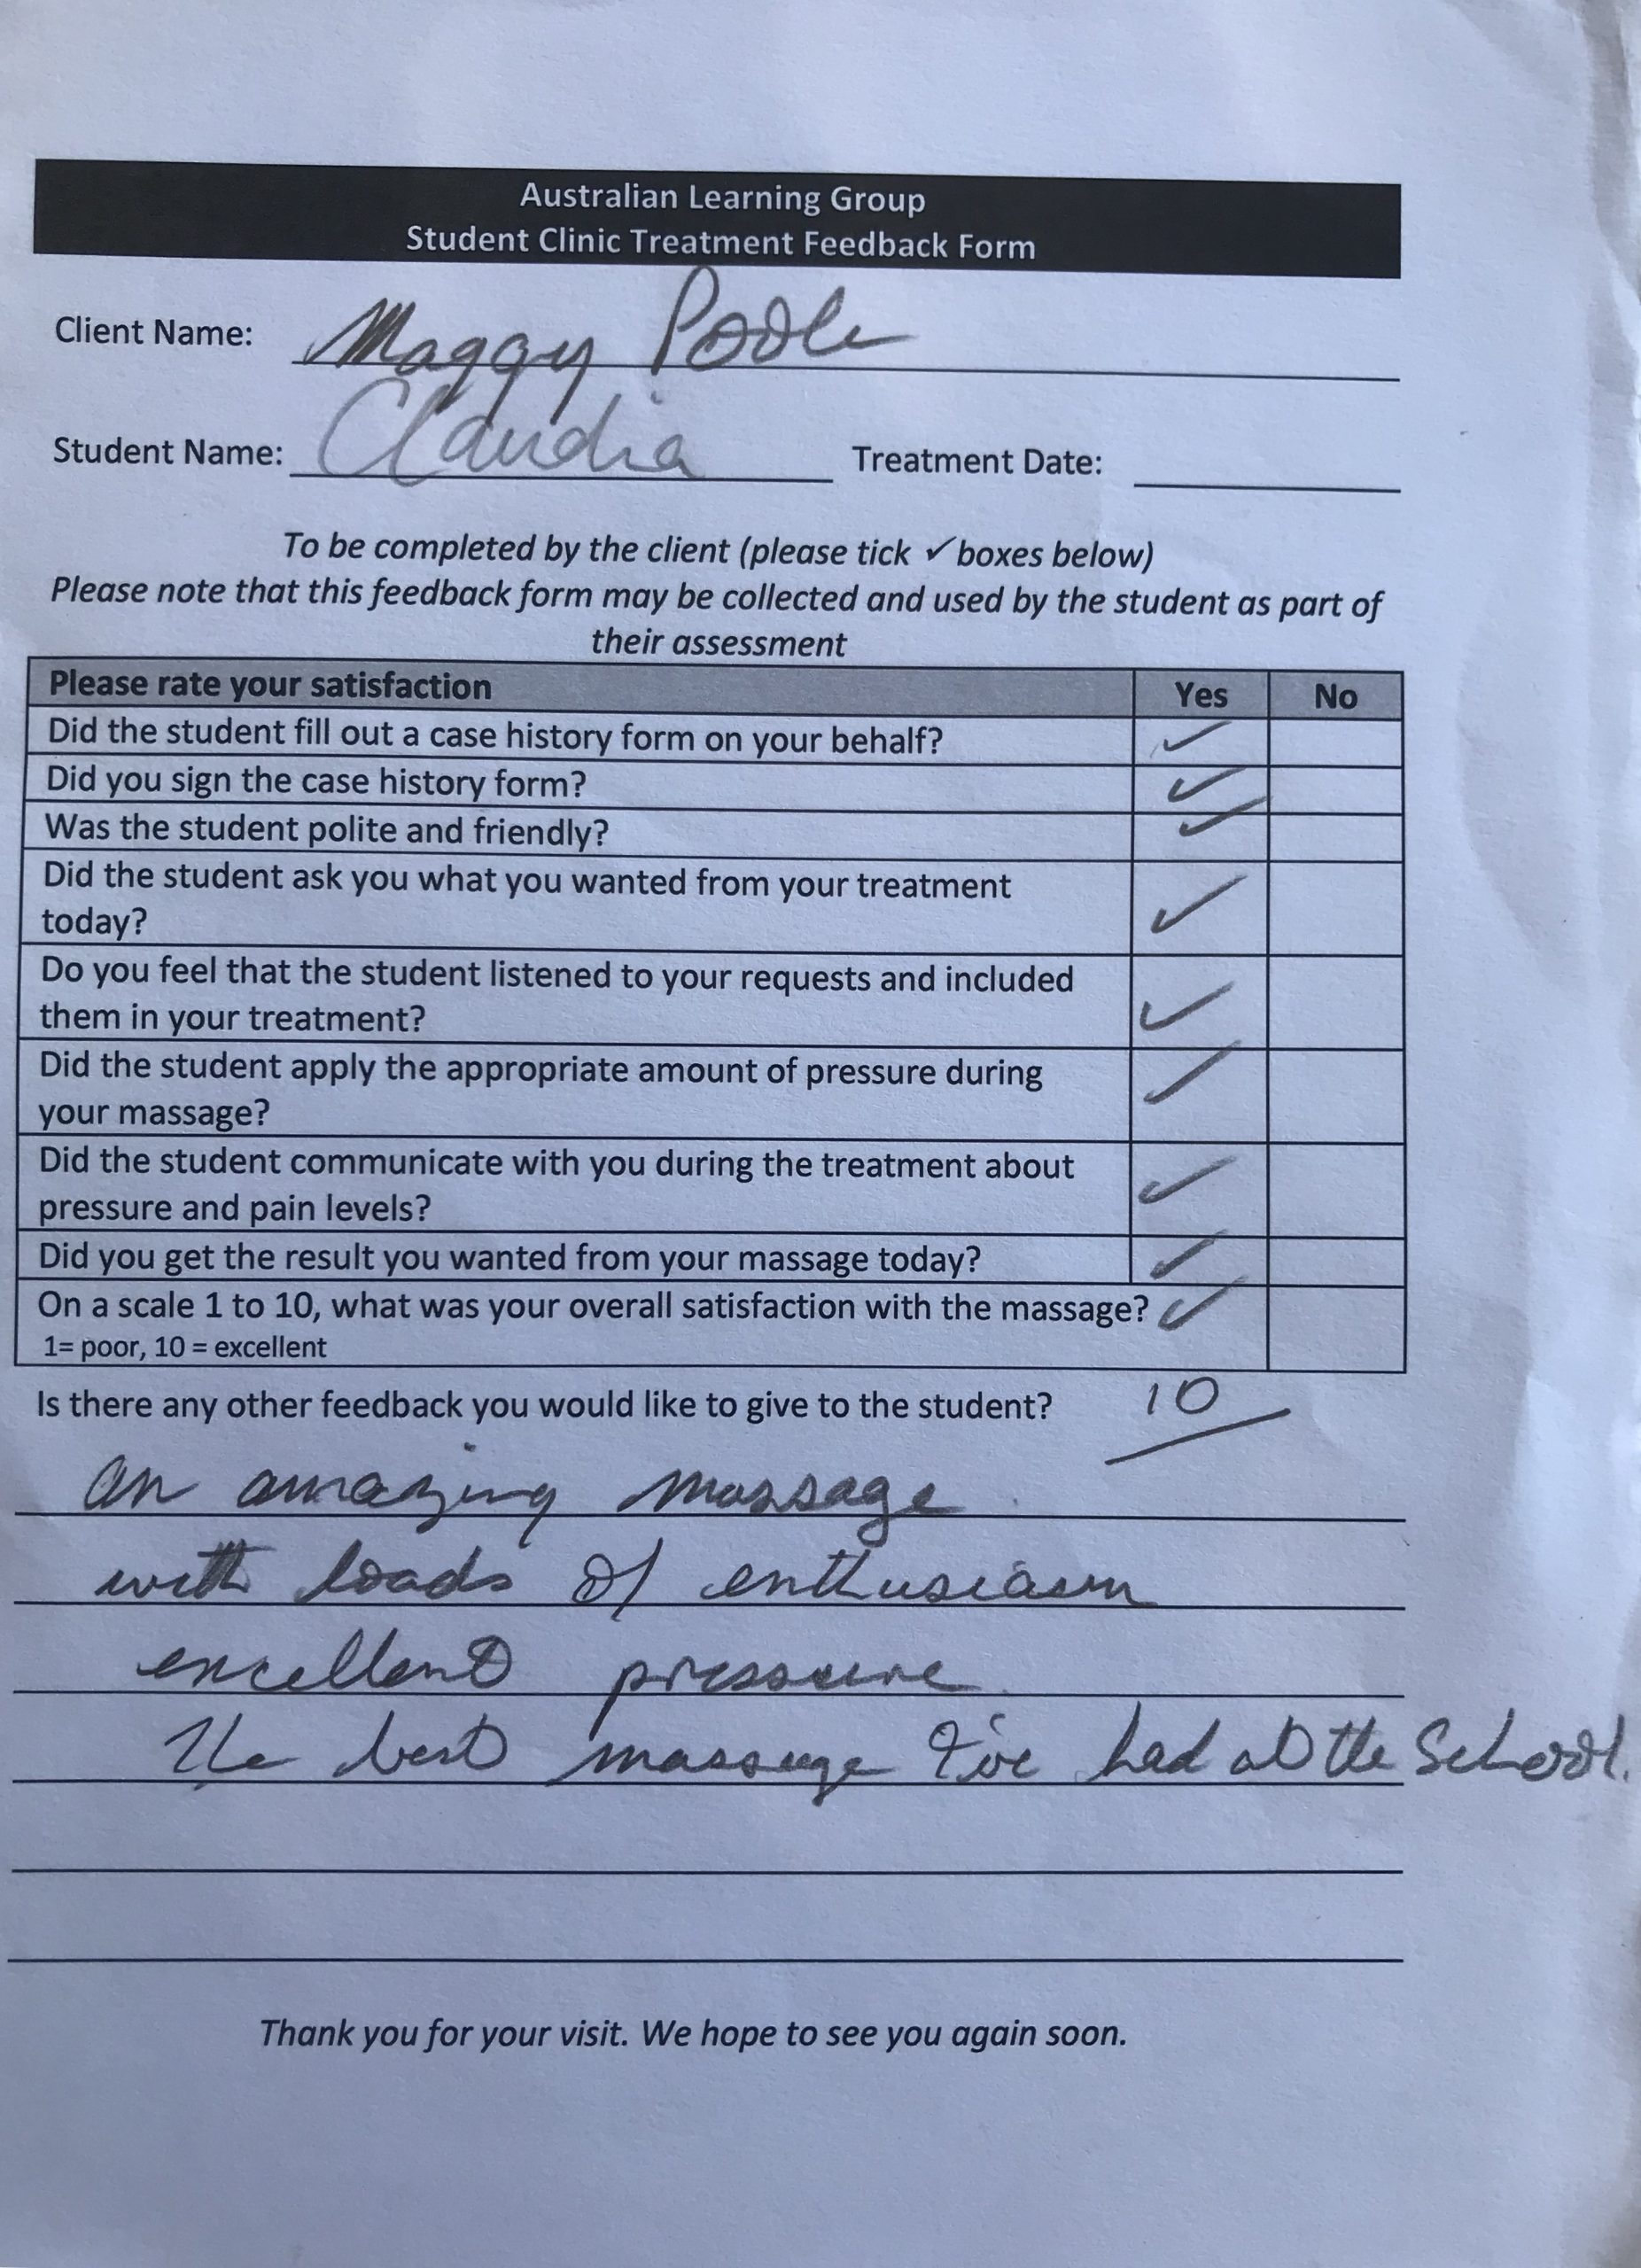 Australian Learning Group
Student Clinic Treatment Feedback Form
Client Name: Maggy Poole
Student Name: Claudia Treatment Date:
To be completed by the client (please tick ✓ boxes below)
Please note that this feedback form may be collected and used by the student as part of
their assessment
Please rate your satisfaction Yes No
Did the student fill out a case history form on your behalf? ✓
Did you sign the case history form? ✓
Was the student polite and friendly? ✓
Did the student ask you what you wanted from your treatment
today? ✓
Do you feel that the student listened to your requests and included
them in your treatment? ✓
Did the student apply the appropriate amount of pressure during
your massage? ✓
Did the student communicate with you during the treatment about
pressure and pain levels? ✓
Did you get the result you wanted from your massage today? ✓
On a scale 1 to 10, what was your overall satisfaction with the massage? ✓
1= poor, 10 = excellent
Is there any other feedback you would like to give to the student? 10
an amazing massage
with loads of enthusiasm
excellent pressure
The best massage I've had at the School.
Thank you for your visit. We hope to see you again soon.